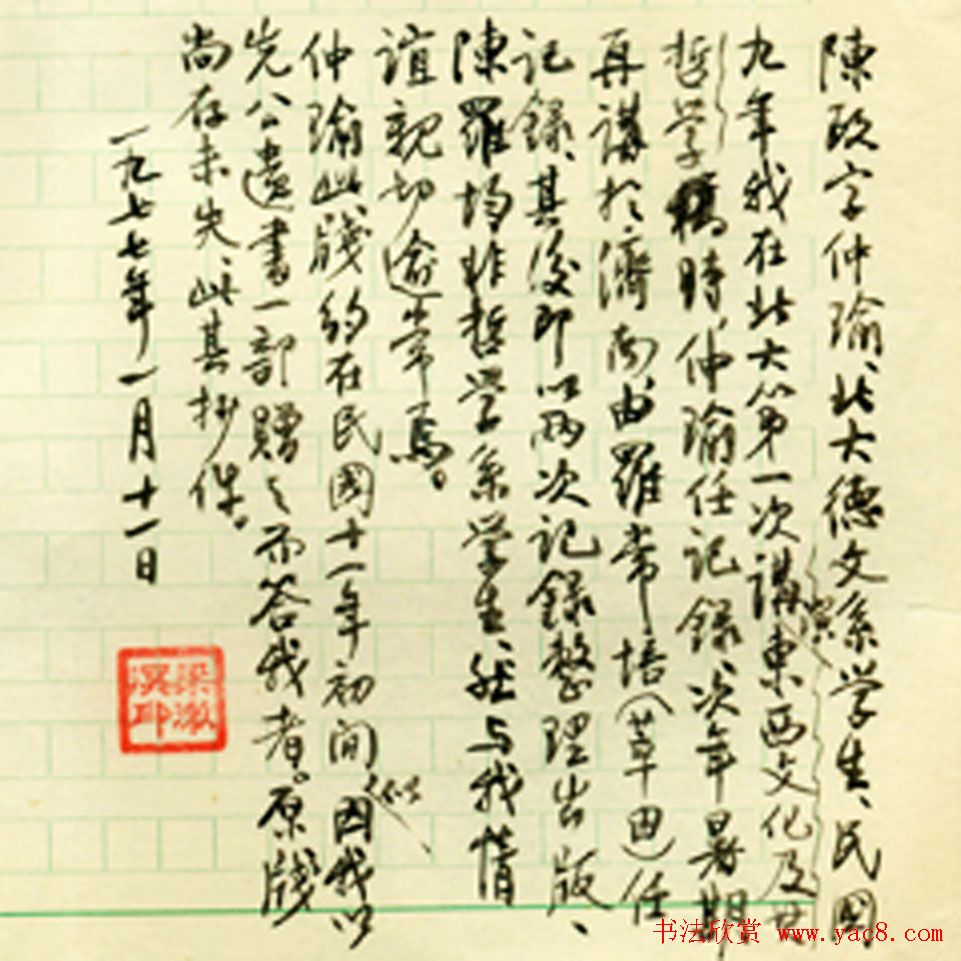 陳政字仲瑜、北大德文系学生、民國
九年我在北大第一次講演東西文化及其
哲学稿時、仲瑜任记録、次年暑期
再講於濟南由羅常培(莘田)任
记録、其後即以两次记録整理出版、
陳羅均非哲学系学生、然与我情
誼親切逾常焉。
仲瑜此牋约在民國十一年初间、似因我以
先公遗書一部赠之而答我者。原牋
尚存未失、此其抄件。
一九七七年一月十一日
梁漱
溟印
书法欣赏 www.yac8.com